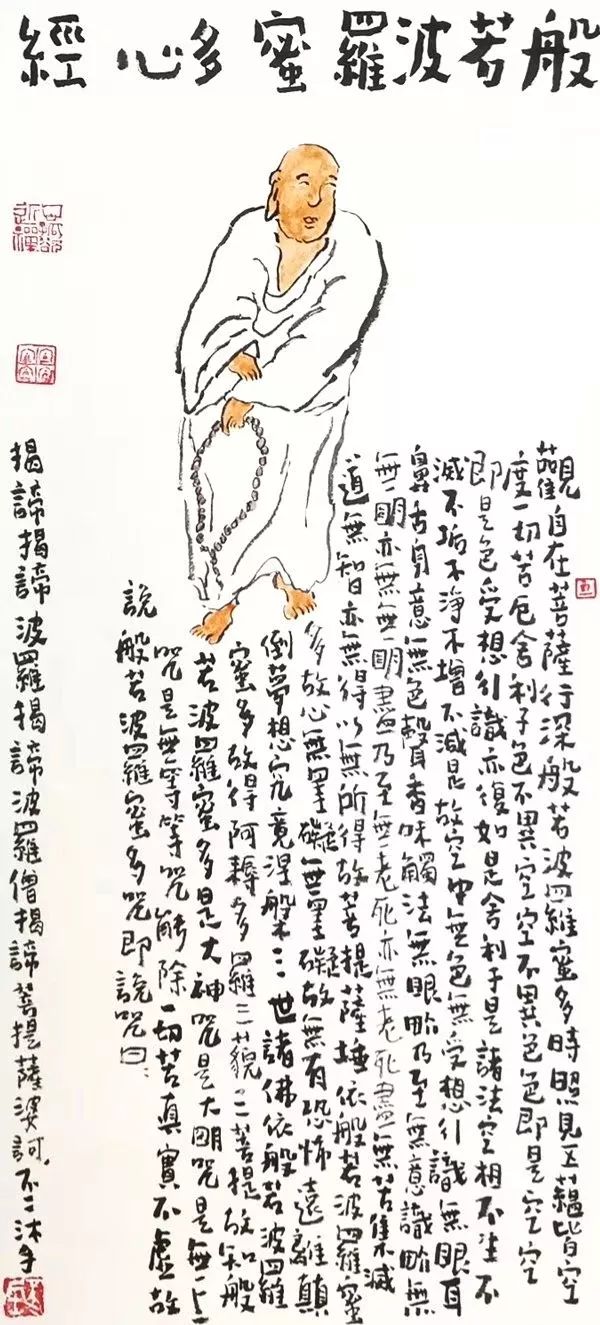 般若波羅蜜多心經
觀自在菩薩行深般若波羅蜜多時照見五蘊皆空
度一切苦厄舍利子色不異空空不異色色即是空空
即是色受想行識亦復如是舍利子是諸法空相不生不
滅不垢不淨不增不減是故空中無色無受想行識無眼耳
鼻舌身意無色聲香味觸法無眼畍乃至無意識畍無
無明亦無無明盡乃至無老死亦無老死盡無苦集滅
道無智亦無得以無所得故菩提薩埵依般若波羅蜜
多故心無罣礙無罣礙故無有恐怖遠離顛
倒夢想究竟涅槃三世諸佛依般若波羅
蜜多故得阿耨多羅三藐三菩提故知般
若波羅蜜多是大神咒是大明咒是無上
咒是無等等咒能除一切苦真實不虛故
說般若波羅蜜多咒即說咒曰:
揭諦揭諦波羅揭諦波羅僧揭諦菩提薩婆訶 不二沐手